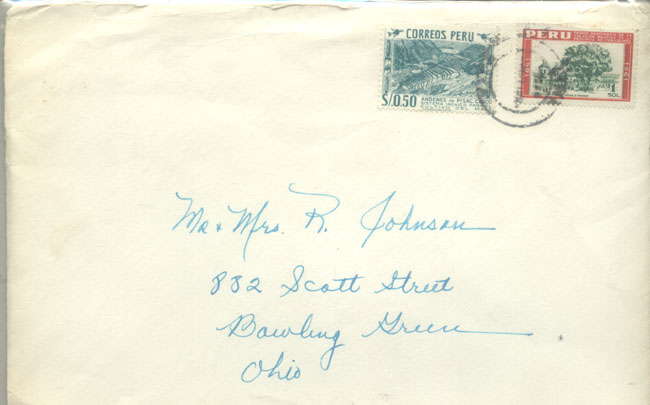 CORREOS PERU
S/0.50
ANDENES DE PISAC
PERU
1961
1961
1
SOL
Mr & Mrs. R. Johnson
832 Scott Street
Bowling Green
Ohio